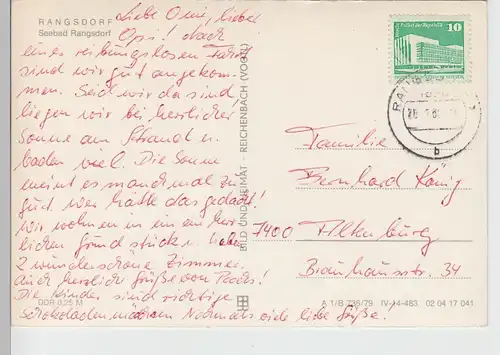 RANGSDORF
Seebad Rangsdorf
Liebe Omi, lieber
Opi! Nach
einer reibungslosen Fahrt
sind wir gut angekom-
men. Seid wir da sind,
liegen wir bei herrlicher
Sonne am Strand u.
baden viel. Die Sonne
meint es manchmal zu
gut. Wer hätte das gedacht!
Wir wohnen in ein em herr
lichen Grundstück u. haben
2 wunderschöne Zimmer.
Auch herzliche Grüße von
Die Kinder sind richtige
Schokoladen Nochmals viele liebe Grüße!
DDR 0,25 M
BILD UND HEIMAT · REICHENBACH (VOGTL)
10
b
Familie
Bernhard König
7400 Altenburg
Brauhausstr. 34
A 1/B 736/79 IV-14-483 02 04 17 041